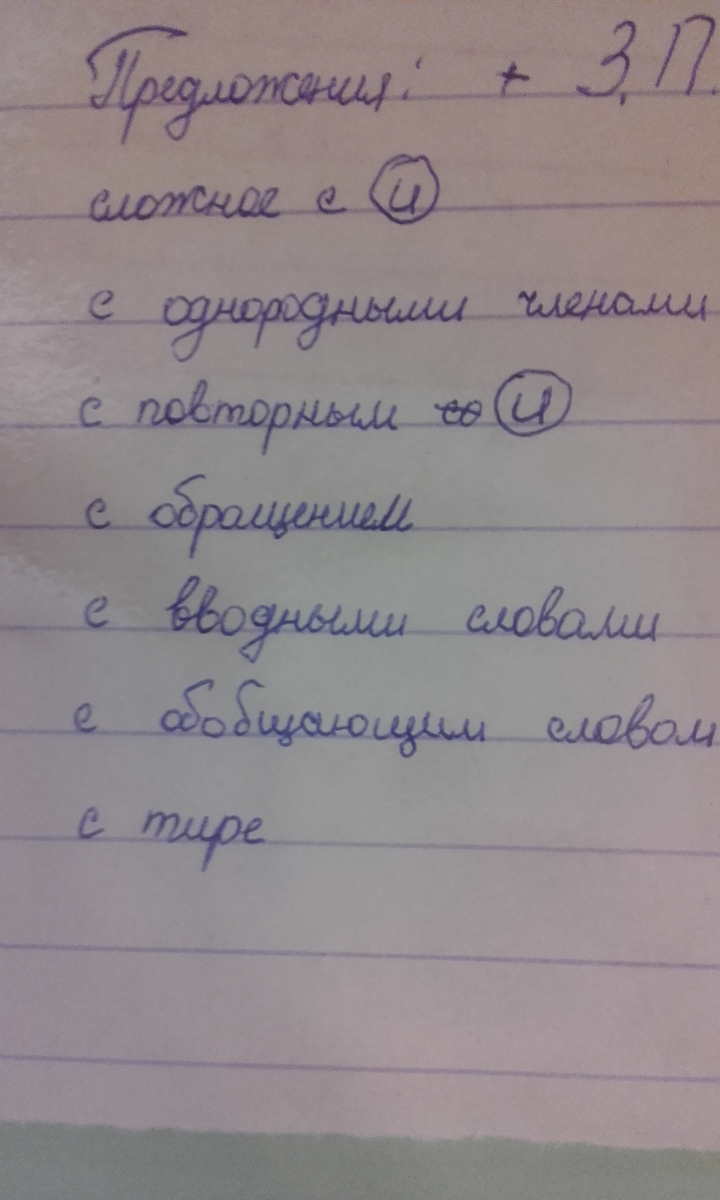 Предложения: + З.П.
сложное с и
с однородными членами
с повторным и
с обращением
с вводными словами
с обобщающим словом
с тире